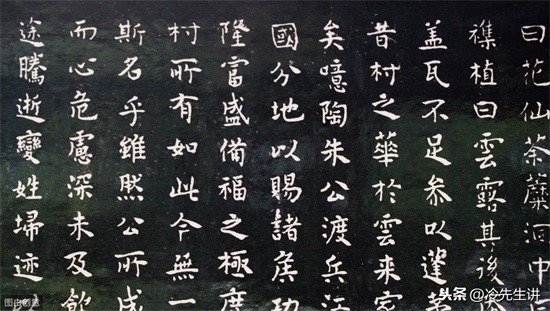 曰花仙荼蘼洞中
襍植曰雲露其後
盖瓦不足叅以蓬茅
昔村之華於雲来家
矣噫陶朱公渡兵江
國分地以賜諸侯功
隆富盛備福之極度
村所有如此今無一
斯名乎雖然公所成
而心危慮深未及飲
途騰逝變姓埽迹
图虫创意
头条 @冷先生讲